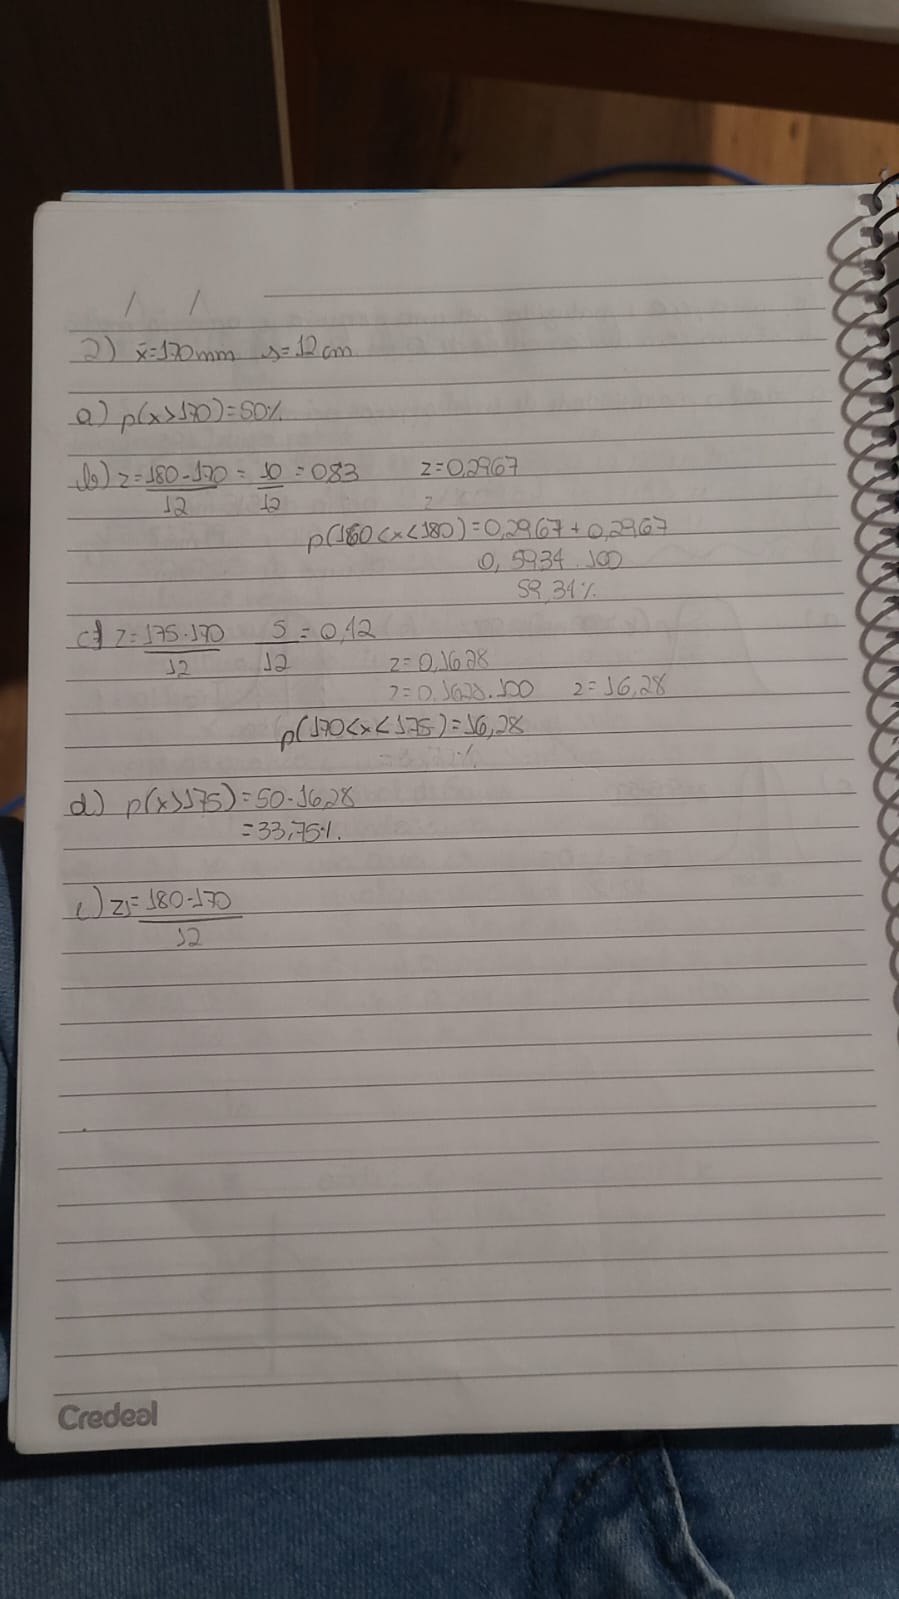 / /
2) x̄=170mm s=12cm
a) p(x>170)=50%
b) z=180-170/12 = 10/12 = 083 z=0,2967
z
p(160<x<180)=0,2967+0,2967
0,5934.100
59,34%
c) z=175-170/12 5/12 = 0,42
z=0,1628
z=0,1628.100 z=16,28
p(170<x<175)=16,28
d) p(x>175)=50-16,28
=33,75%.
z1=180-170/12
Credeal